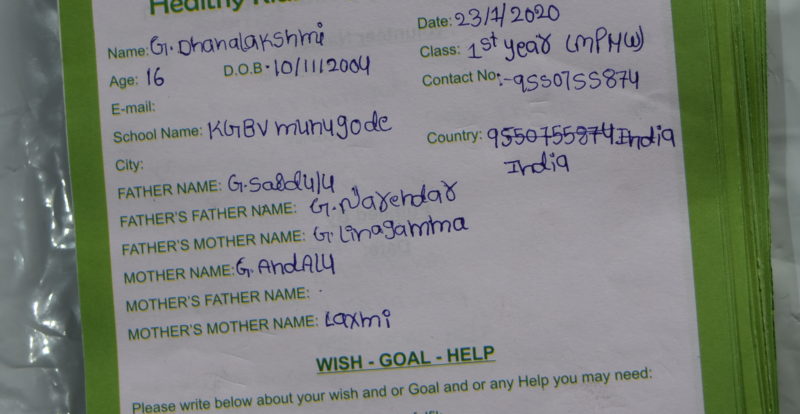 Healthy
Name: G. Dhanalakshmi
Date: 23/1/2020
Age: 16 D.O.B - 10/11/2004
Class: 1st year (MPHW)
E-mail:
Contact No:-9550755874
School Name: KGBV munugode
Country: 9550755874 India
India
City:
FATHER NAME:
FATHER'S FATHER NAME: G. Narendar
FATHER'S MOTHER NAME: G. Linagamma
MOTHER NAME: G. AndAlu
MOTHER'S FATHER NAME:
MOTHER'S MOTHER NAME: Laxmi
WISH - GOAL - HELP
Please write below about your wish and or Goal and or any Help you may need: